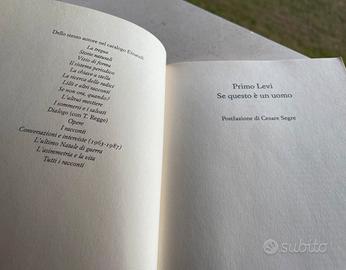 Dello stesso autore nel catalogo Einaudi
La tregua
Storie naturali
Vizio di forma
Il sistema periodico
La chiave a stella
La ricerca delle radici
Lilít e altri racconti
Se non ora, quando?
L'altrui mestiere
I sommersi e i salvati
Dialogo (con T. Regge)
Opere
I racconti
Conversazioni e interviste (1963-1987)
L'ultimo Natale di guerra
L'asimmetria e la vita
Tutti i racconti
Primo Levi
Se questo è un uomo
Postfazione di Cesare Segre
subito